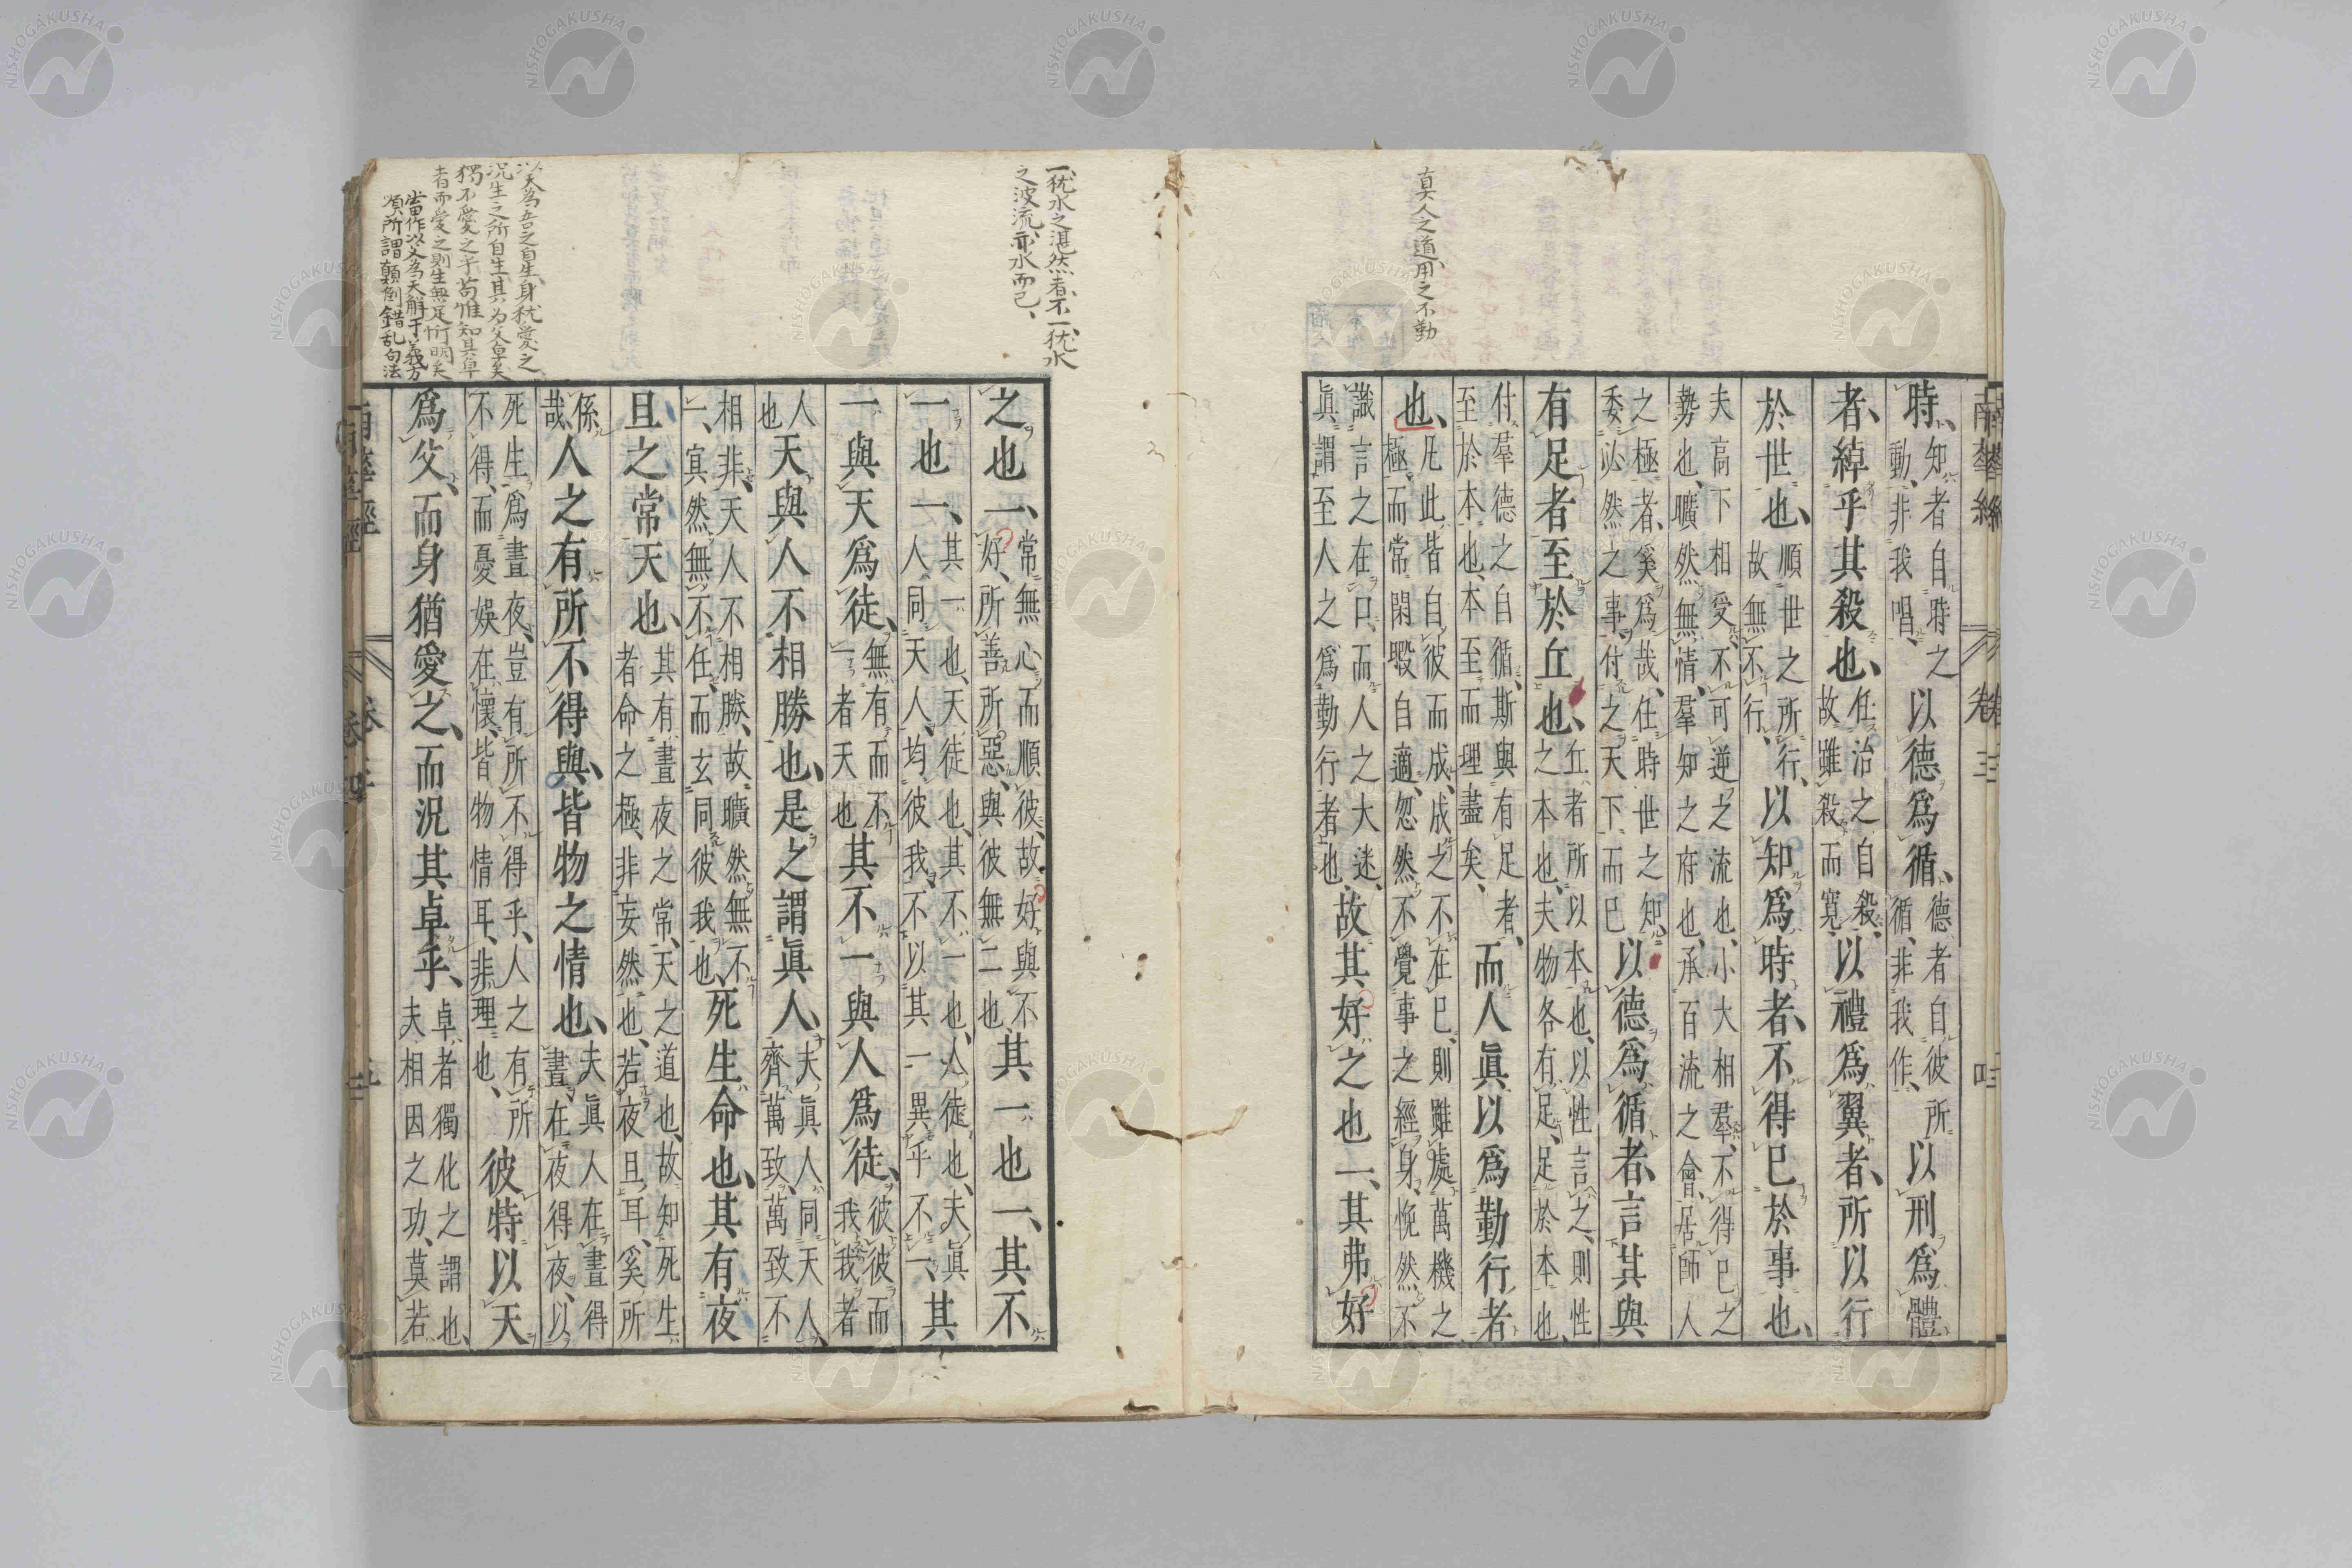 真人之道用之不勤
時、知者自時之動、非我唱、以德爲循、德者自彼所循、非我作、以刑爲體
者、綽乎其殺也、任治之自殺、故雖殺而寬、以禮爲翼者、所以行
於世也、順世之所行、故無不行、以知爲時者、不得已於事也、
夫高下相受、不可逆之流也、小大相羣、不得已之
勢也、曠然無情、羣知之府也、承百流之會、居師人
之極者、奚爲哉、任時世之知、
委必然之事、付之天下而已以德爲循者、言其與
有足者至於丘也、丘者所以本也、以性言之、則性之本也、夫物各有足、足於本也、
付羣德之自循、斯與有足者、
至於本也、本至而理盡矣、而人眞以爲勤行者
也、凡此皆自彼而成、成之不在已、則雖處萬機之極、而常閑暇自適、忽然不覺事之經身、悗然不
識言之在口、而人之大迷、
眞謂至人之爲勤行者也、故其好之也一、其弗好
一、犹水之湛然者、不一、犹水
之波流、亦水而已、
之也一、常無心而順彼、故好與不好、所善所惡、與彼無二也、其一也一、其不
一也一、其一也、天徒也、其不一也、人徒也、夫眞人、同天人、均彼我、不以其一異乎不一、其
一與天爲徒、無有而不一者天也其不一與人爲徒、彼彼而我我者
人也天與人不相勝也、是之謂眞人、夫眞人同天人、齊萬致、萬致不
相非、天人不相勝、故曠然無不
一、寘然無不任、而玄同彼我也、死生命也、其有夜
且之常天也、其有晝夜之常、天之道也、故知死生者命之極、非妄然也、若夜且耳、奚所
係哉、人之有所不得與、皆物之情也、夫眞人在晝得晝、在夜得夜、以
死生爲晝夜、豈有所不得乎、人之有所
不得、而憂娛在懷、皆物情耳、非理也、彼特以天
爲父、而身猶愛之、而況其卓乎、卓者獨化之謂也、夫相因之功、莫若
以天為吾之自生、身犹愛之、
況生之所自生、其为父卓矣
獨不愛之乎、苟惟知其卓
者而愛之、則生無足忻明矣
當作以父為天解于義方
順所謂顛倒錯乱句法
南華經 卷三